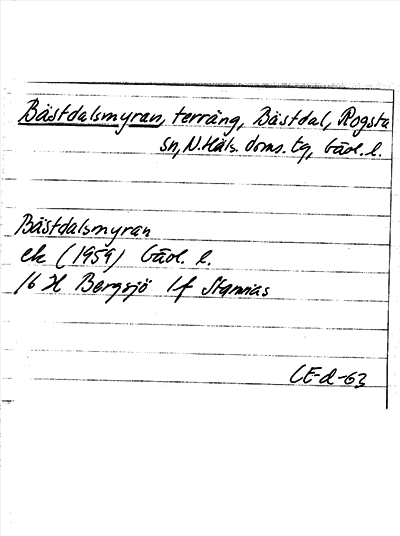 Bästdalsmyran, terräng, Bästdal, Rogsta
sn, N. Häls. doms. tg, Gävl. l.
Bästdalsmyran
ek (1959) Gävl. l.
16 H Bergsjö 1f Stamnäs
CE-d-63